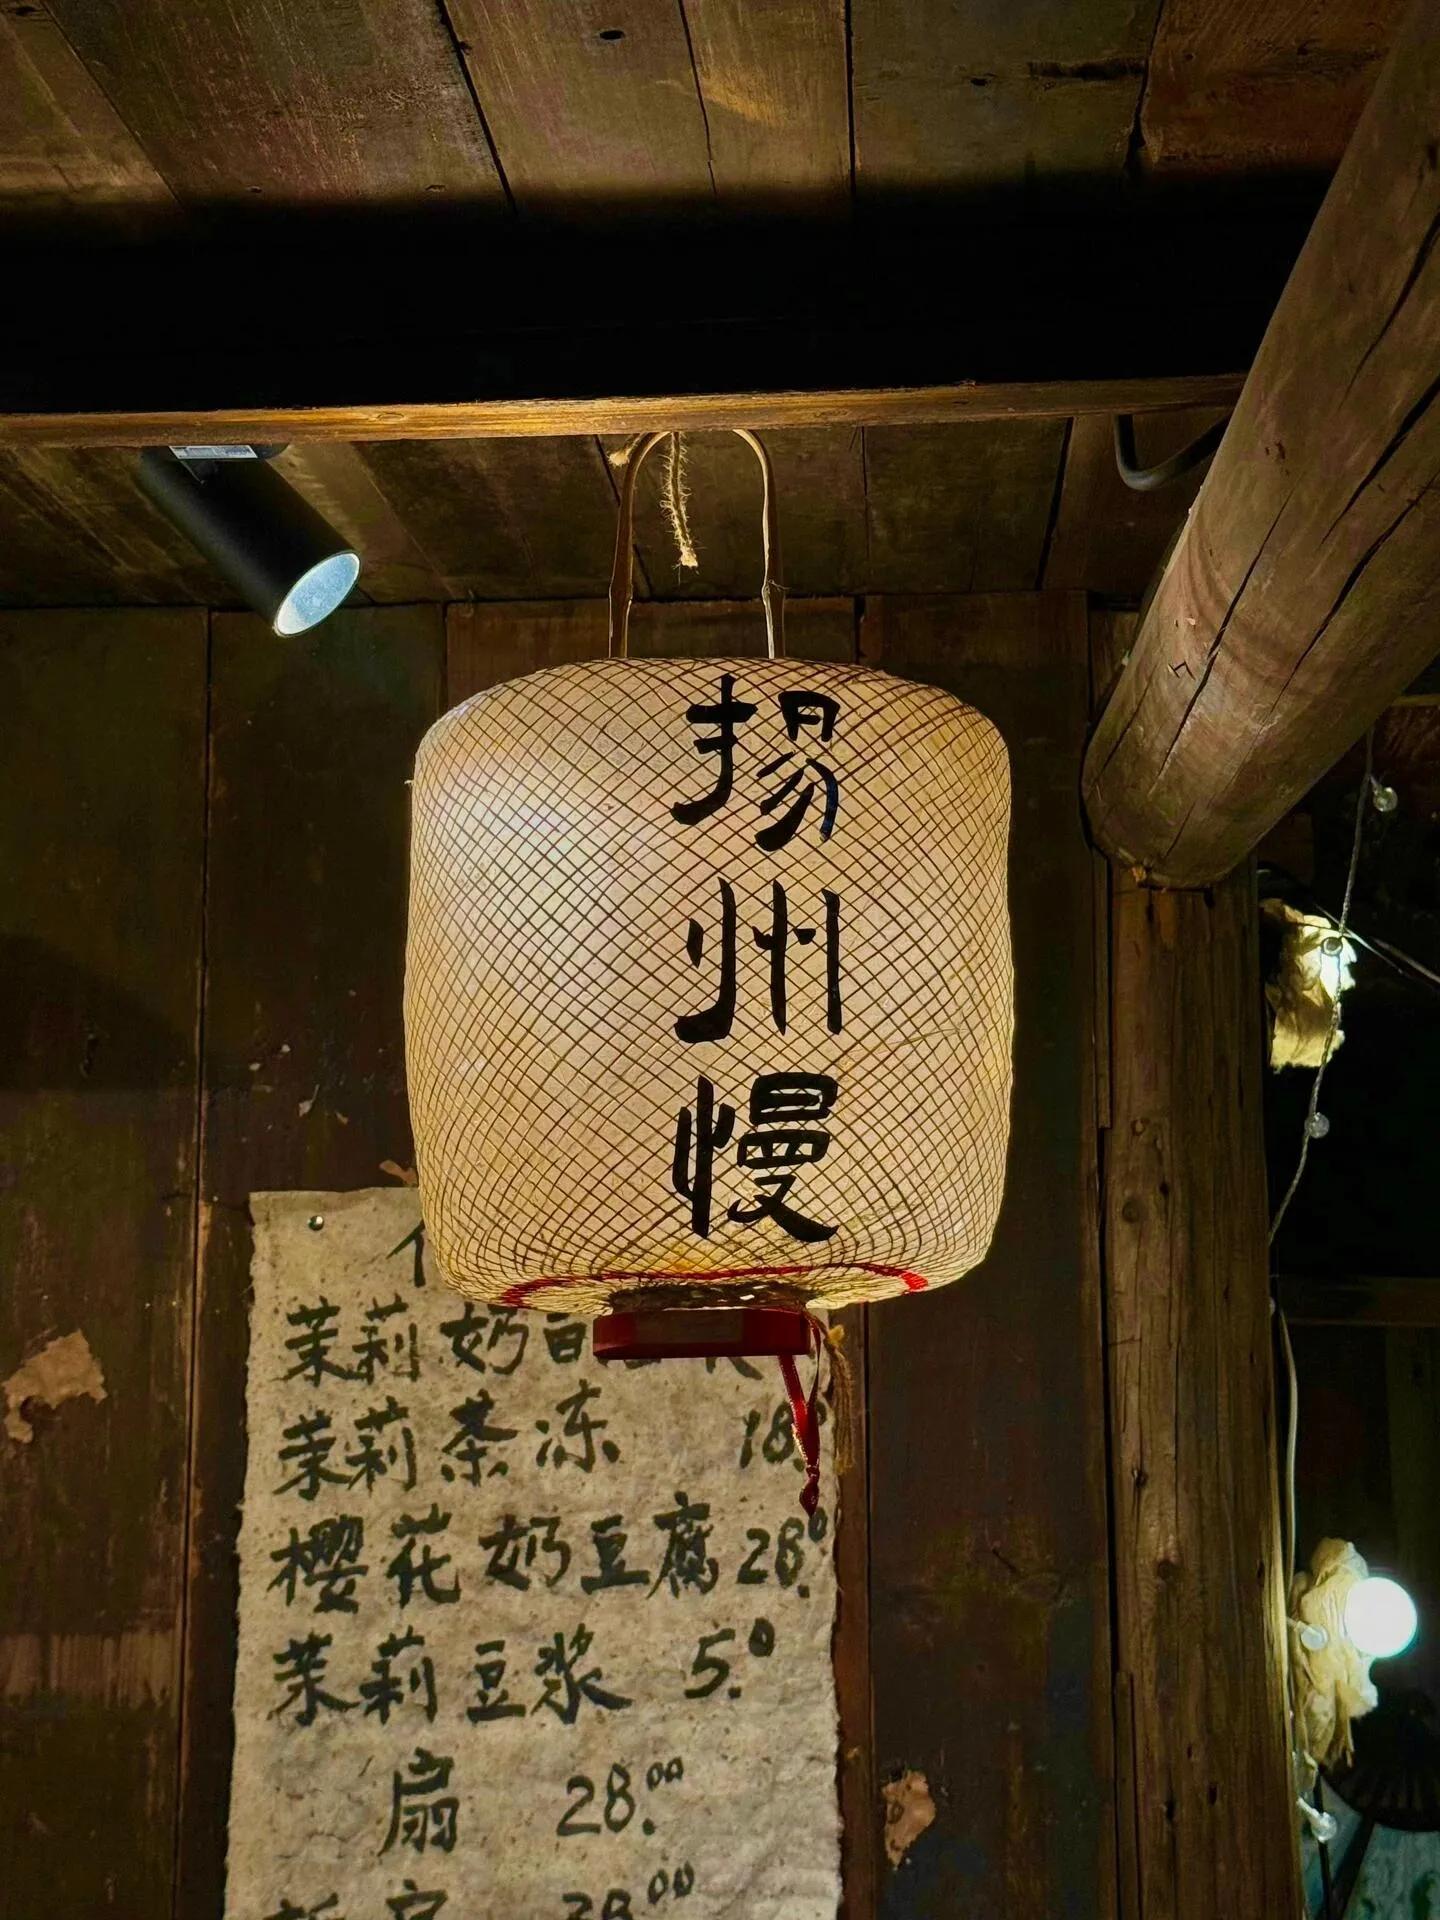 扬州慢
茉莉奶
茉莉茶冻 18.
櫻花奶豆腐 28.0
茉莉豆浆 5.0
扇 28.00
28.00